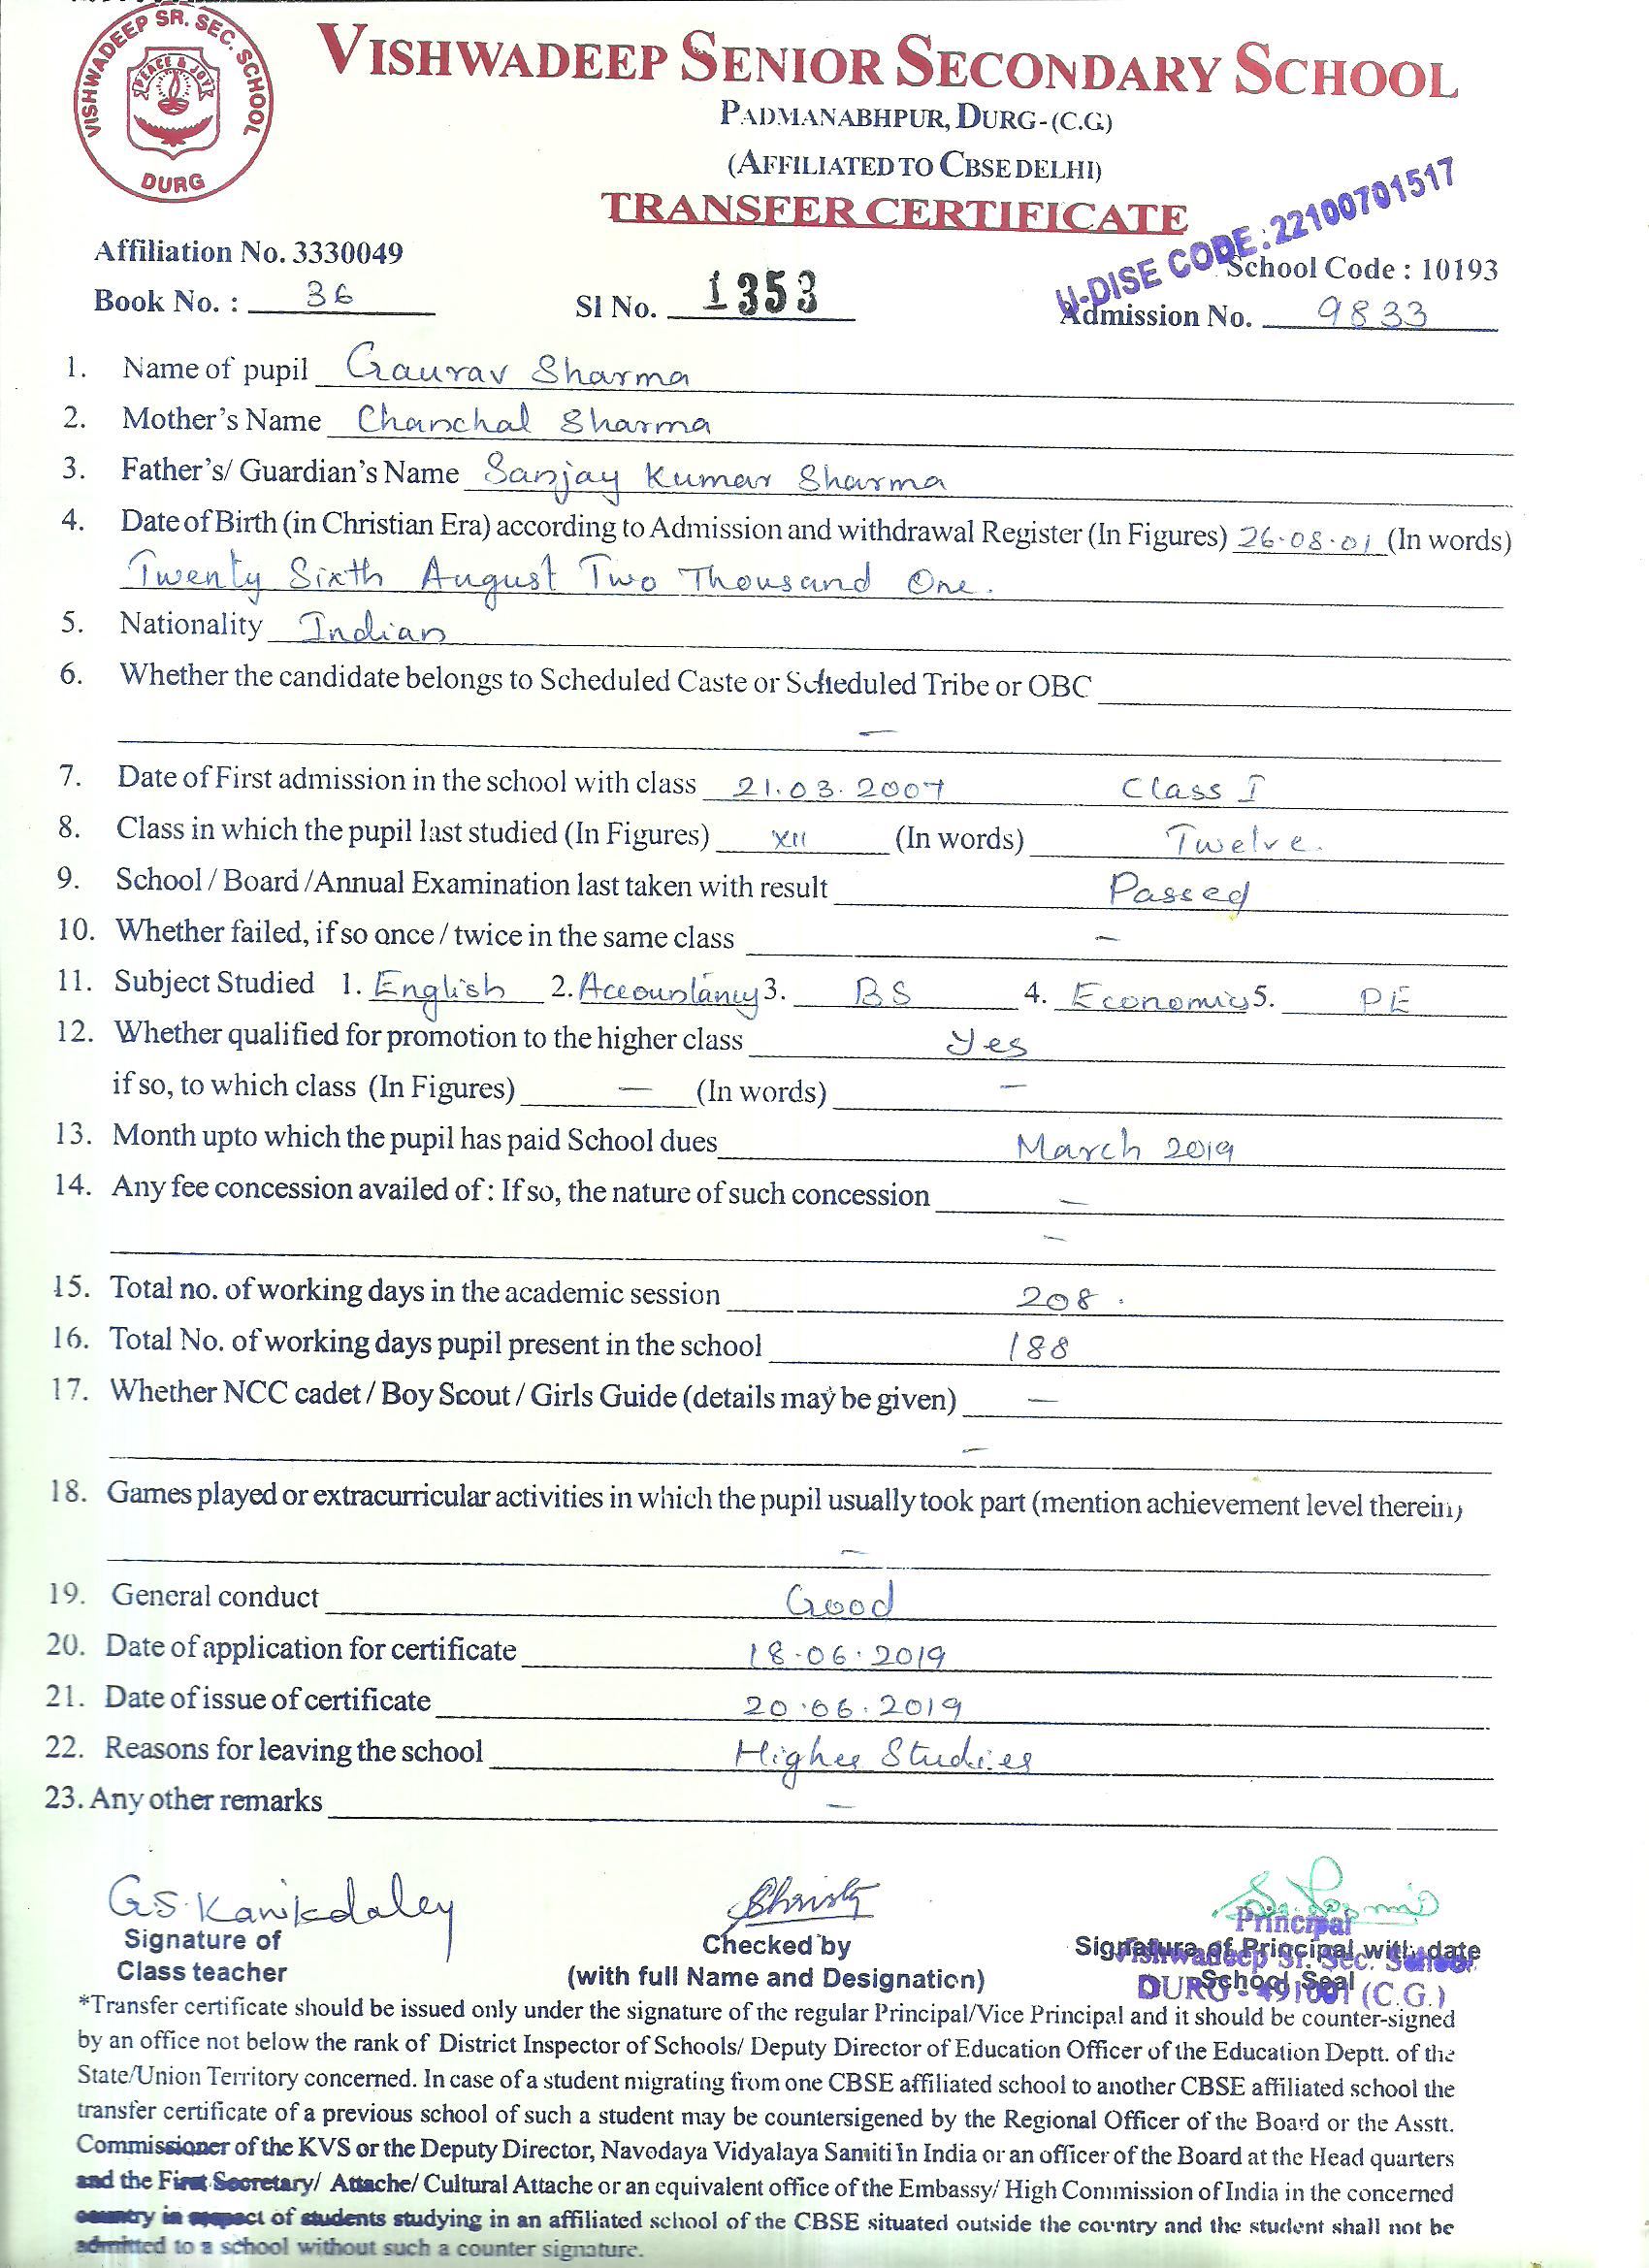 VISHWADEEP SR. SEC. SCHOOL
PEACE & JOY
DURG
VISHWADEEP SENIOR SECONDARY SCHOOL
PADMANABHPUR, DURG-(C.G.)
(AFFILIATED TO CBSE DELHI)
TRANSFER CERTIFICATE
U-DISE CODE: 22100701517
Affiliation No. 3330049 School Code : 10193
Book No. : 36 Sl No. 1353 Admission No. 9833
1. Name of pupil Gaurav Sharma
2. Mother's Name Chanchal Sharma
3. Father's/ Guardian's Name Sanjay Kumar Sharma
4. Date of Birth (in Christian Era) according to Admission and withdrawal Register (In Figures) 26.08.01 (In words)
Twenty Sixth August Two Thousand One.
5. Nationality Indian
6. Whether the candidate belongs to Scheduled Caste or Scheduled Tribe or OBC
—
7. Date of First admission in the school with class 21.03.2007 Class I
8. Class in which the pupil last studied (In Figures) XII (In words) Twelve.
9. School / Board /Annual Examination last taken with result Passed
10. Whether failed, if so once / twice in the same class —
11. Subject Studied 1. English 2. Accountancy 3. BS 4. Economics 5. PE
12. Whether qualified for promotion to the higher class Yes
if so, to which class (In Figures) — (In words) —
13. Month upto which the pupil has paid School dues March 2019
14. Any fee concession availed of : If so, the nature of such concession —
—
15. Total no. of working days in the academic session 208.
16. Total No. of working days pupil present in the school 188
17. Whether NCC cadet / Boy Scout / Girls Guide (details may be given) —
—
18. Games played or extracurricular activities in which the pupil usually took part (mention achievement level therein)
—
19. General conduct Good
20. Date of application for certificate 18.06.2019
21. Date of issue of certificate 20.06.2019
22. Reasons for leaving the school Higher Studies
23. Any other remarks —
Principal
Signature of Checked by Signature of Principal with date
Vishwadeep Sr. Sec. School
Class teacher (with full Name and Designation) School Seal
DURG - 491001 (C.G.)
*Transfer certificate should be issued only under the signature of the regular Principal/Vice Principal and it should be counter-signed
by an office not below the rank of District Inspector of Schools/ Deputy Director of Education Officer of the Education Deptt. of the
State/Union Territory concerned. In case of a student migrating from one CBSE affiliated school to another CBSE affiliated school the
transfer certificate of a previous school of such a student may be countersigened by the Regional Officer of the Board or the Asstt.
Commissioner of the KVS or the Deputy Director, Navodaya Vidyalaya Samiti in India or an officer of the Board at the Head quarters
and the First Secretary/ Attache/ Cultural Attache or an equivalent office of the Embassy/ High Commission of India in the concerned
country in respect of students studying in an affiliated school of the CBSE situated outside the country and the student shall not be
admitted to a school without such a counter signature.